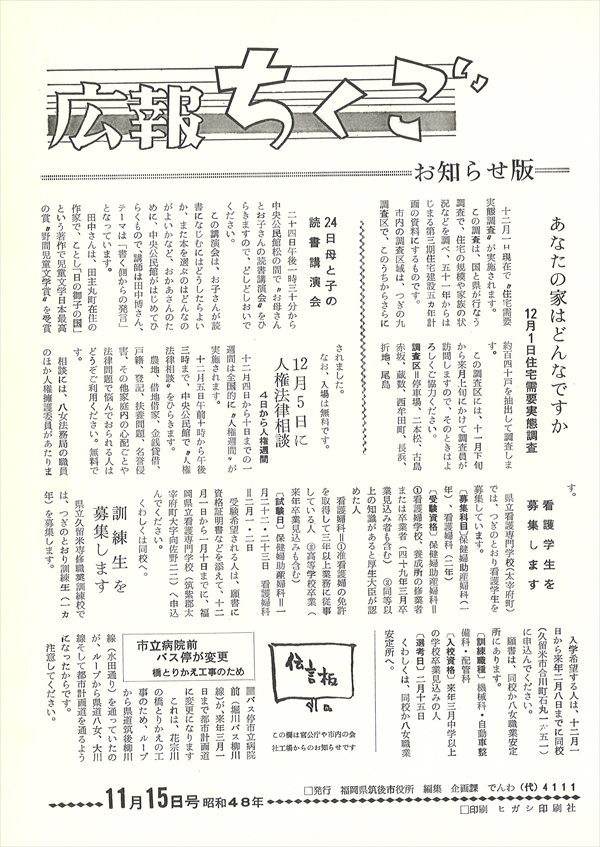 広報ちくご
お知らせ版
あなたの家はどんなですか
12月1日住宅需要実態調査
十二月一日現在で〝住宅需要
実態調査〟が実施されます。
この調査は、国と県が行なう
調査で、住宅の規模や家族の状
況などを調べ、五十一年からは
じまる第三期住宅建設五カ年計
画の資料にするものです。
市内の調査区域は、つぎの九
調査区で、このうちからさらに
約百四十戸を抽出して調査しま
す。
この調査区には、十一月下旬
から来月上旬にかけて調査員が
訪問しますので、そのときはよ
ろしくご協力ください。
調査区＝停車場、二本松、古島
赤坂、蔵数、西牟田町、長浜、
折地、尾島
24日母と子の
読書講演会
二十四日午後一時三十分から
中央公民館松の間で〝お母さん
とお子さんの読書講演会〟をひ
らきますので、どしどしおいで
ください。
この講演会は、お子さんが読
書になじむにはどうしたらよい
か、また本を選ぶのはどんなの
がよいかなど、おかあさんのた
めに、中央公民館がはじめてひ
らくもので、講師は田中博さん、
テーマは「書く側からの発言」
となっています。
田中さんは、田主丸町在住の
作家で、ことし「日の御子の国」
という著作で児童文学日本最高
の賞〝野間児童文学賞〟を受賞
されました。
なお、入場は無料です。
12月5日に
人権法律相談
4日から人権週間
十二月四日から十日までの一
週間は全国的に〝人権週間〟が
実施されます。
十二月五日午前十時から午後
三時まで、中央公民館で〝人権
法律相談〟をひらきます。
農地、借地借家、金銭貸借、
戸籍、登記、扶養問題、名誉侵
害、その他家庭内の心配ごとや
法律問題で悩んでおられる人は
どうぞご利用ください。無料で
す。
相談には、八女法務局の職員
のほか人権擁護委員があたりま
す。
看護学生を
募集します
県立看護専門学校(太宰府町)
では、つぎのとおり看護学生を
募集しています。
〔募集科目〕保健婦助産婦科(一
年)、看護婦科(二年)
〔受験資格〕保健婦助産婦科＝
①看護婦学校、養成所の修業者
または卒業者(四十九年三月卒
業見込み者も含む) ③同等以
上の知識があると厚生大臣が認
めた人
看護婦科＝①准看護婦の免許
を取得して三年以上業務に従事
している人 ②高等学校卒業(
来年卒業見込みも含む)
〔試験日〕保健婦助産婦科＝一
月二十一・二十三日 看護婦科
＝二月一・二日
受験希望される人は、願書に
資格証明書などを添えて、十二
月一日から一月十日までに、福
岡県立看護専門学校(筑紫郡太
宰府町大字向佐野二二)へ申込
んでください。
くわしくは同校へ。
訓練生を
募集します
県立久留米専修職業訓練校で
は、つぎのとおり訓練生(一ヵ
年)を募集します。
入学希望する人は、十二月一
日から来年二月八日までに同校
(久留米市合川町石丸一ノ五一)
に申込んでください。
願書は、同校か八女職業安定
所にあります。
〔訓練職種〕機械科・自動車整
備科・配管科
〔入校資格〕来年三月中学以上
の学校卒業見込みの人
〔選考日〕二月十五日
くわしくは、同校か八女職業
安定所へ。
伝言板
この欄は官公庁や市内の会
社工場からのお知らせです
市立病院前
バス停が変更
橋とりかえ工事のため
バス停市立病院
前(堀川バス柳川
線)が、来年三月一
日まで都市計画道
に変更になります
これは、花宗川
の橋とりかえの工
事のため、ループ
から県道筑後柳川
線(水田通り)を通っていたの
が、ループから県道八女、大川
線そして都市計画道を通るよう
になったからです。
注意してください。
11月15日号 昭和48年
□発行 福岡県筑後市役所 編集 企画課 でんわ(代)4111
□印刷 ヒガシ印刷社